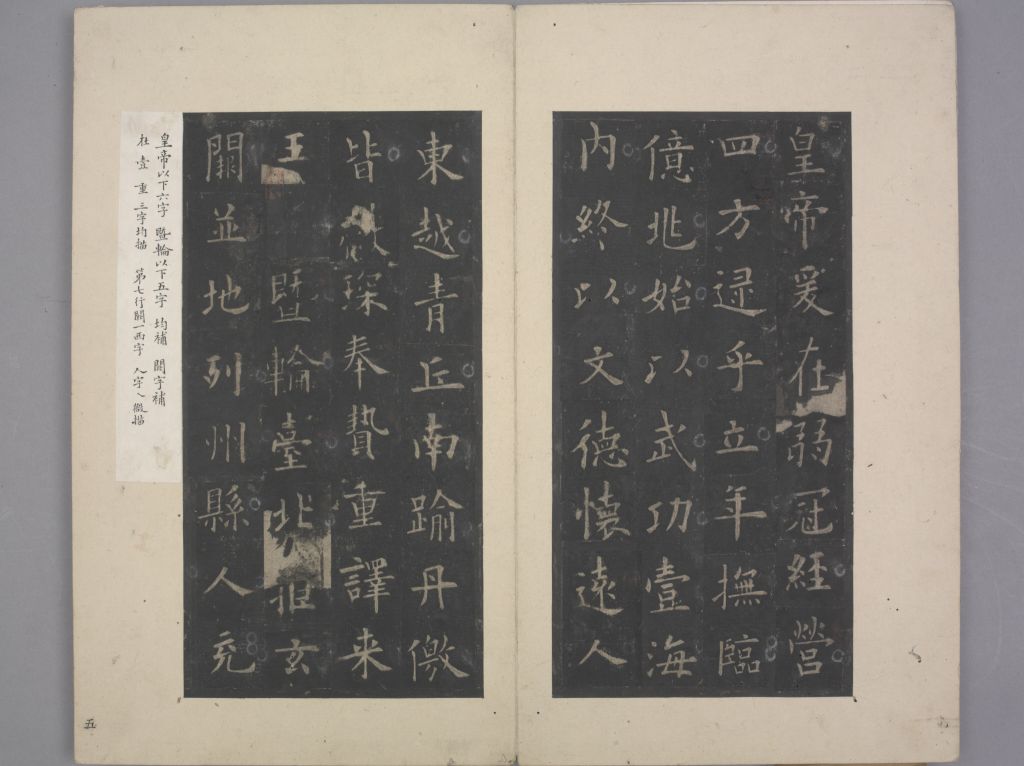 皇帝爰在弱冠經營
四方逯乎立年撫臨
億兆始以武功壹海
內終以文德懷遠人
東越青丘南踰丹儌
皆獻琛奉贄重譯来
王 暨輪臺北拒玄
闕並地列州縣人充
皇帝以下六字 暨輪以下五字 均補 闕字補
在 壹 重 三字均描 第七行闕一西字 人字乀微描
五